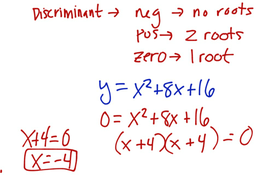 Discriminant → neg → no roots
pos → 2 roots
zero → 1 root
y = x² + 8x + 16
0 = x² + 8x + 16
(x + 4)(x + 4) = 0
x + 4 = 0
x = -4